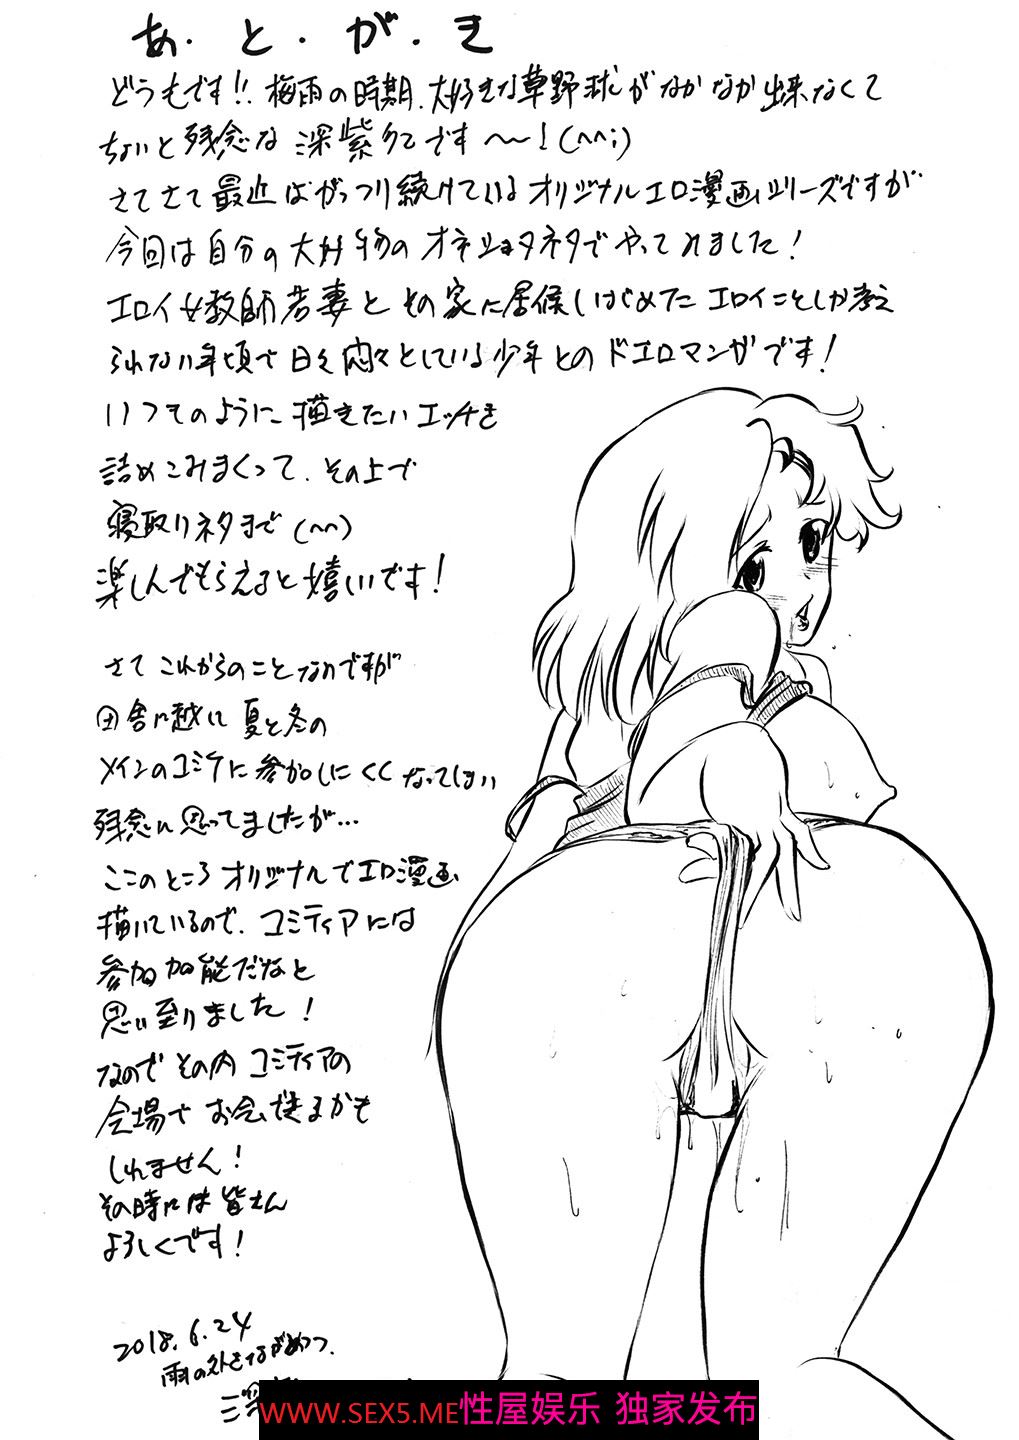 あ・と・が・き
どうもです!!梅雨の時期、大好きな草野球がなかなか出来なくて
ちょいと残念な 深紫です〜〜!(^^;)
さてさて最近はがっつり続けているオリジナルエロ漫画シリーズですが
今回は自分の大好物のオネショタネタでやってみました!
エロイ女教師若妻とその家に居候しはじめたエロイことしか考え
られない年頃で日々悶々としている少年とのドエロマンガです!
いつものように描きたいエッチを
詰めこみまくって、その上で
寝取リネタまで(^^)
楽しんでもらえると嬉しいです!
さてこれからのことなのですが
田舎に越して夏と冬の
メインのコミケに参加しにくくなってしまい
残念に思ってましたが…
ここのところオリジナルでエロ漫画
描いているので、コミティアには
参加可能だなと
思い至りました!
なのでその内コミティアの
会場でお会いできるかも
しれません!
その時には皆さん
よろしくです!
2018.6.24
雨の外をながめつつ、
深
WWW.SEX5.ME性屋娱乐 独家发布